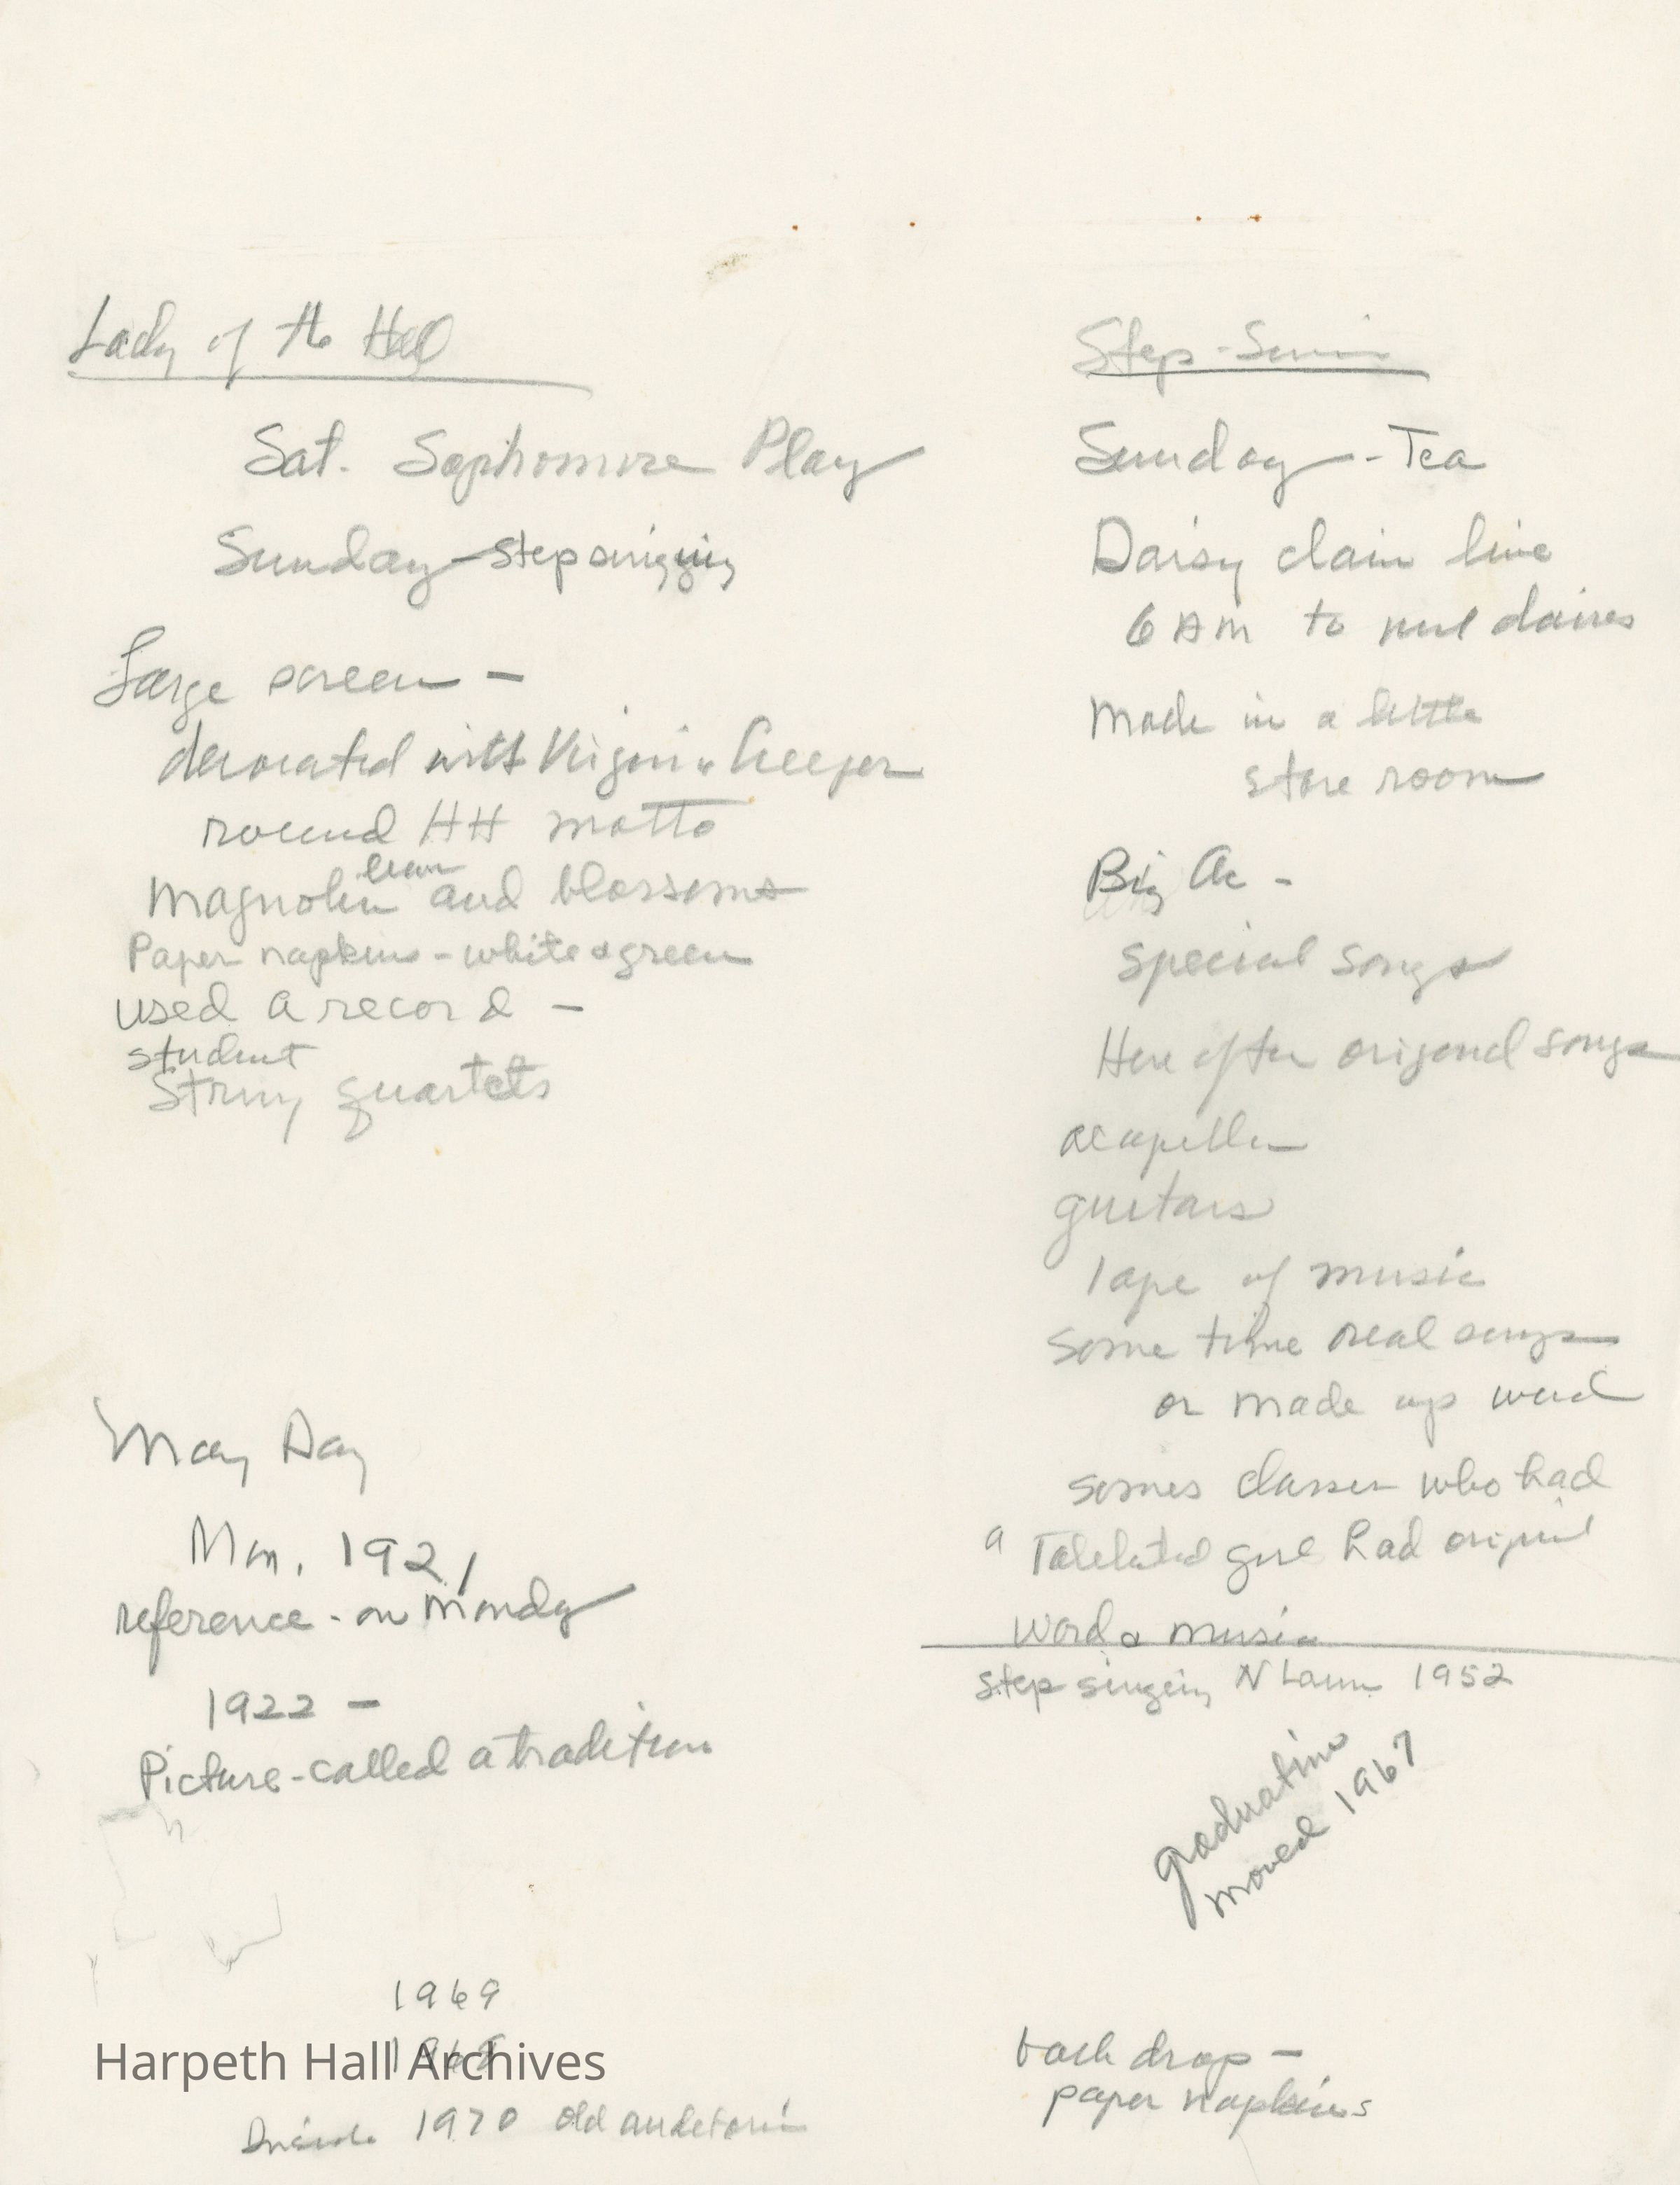 Lady of the Hall
Sat. Sophomore Play
Sunday - Step singing
Large screen -
decorated with Virginia Creeper
round HH motto
leaves
Magnolia and blossoms
Paper napkins - white & green
used a record -
student
String quartets
May Day
Mon. 1921
reference - on Monday
1922 -
Picture - called a tradition
1969
1968
Harpeth Hall Archives
Inside 1970 old auditorium
Step-
Sunday - Tea
Daisy chain line
6 AM to daisies
Made in a little
store room
Big
special songs
Here after original songs
acapella
guitars
Tape of music
Some time real songs
or made up word
somes classes who had
a Talelated girl had original
word & music
Step singing N Lawn 1952
graduation
moved 1967
back drop -
paper napkins